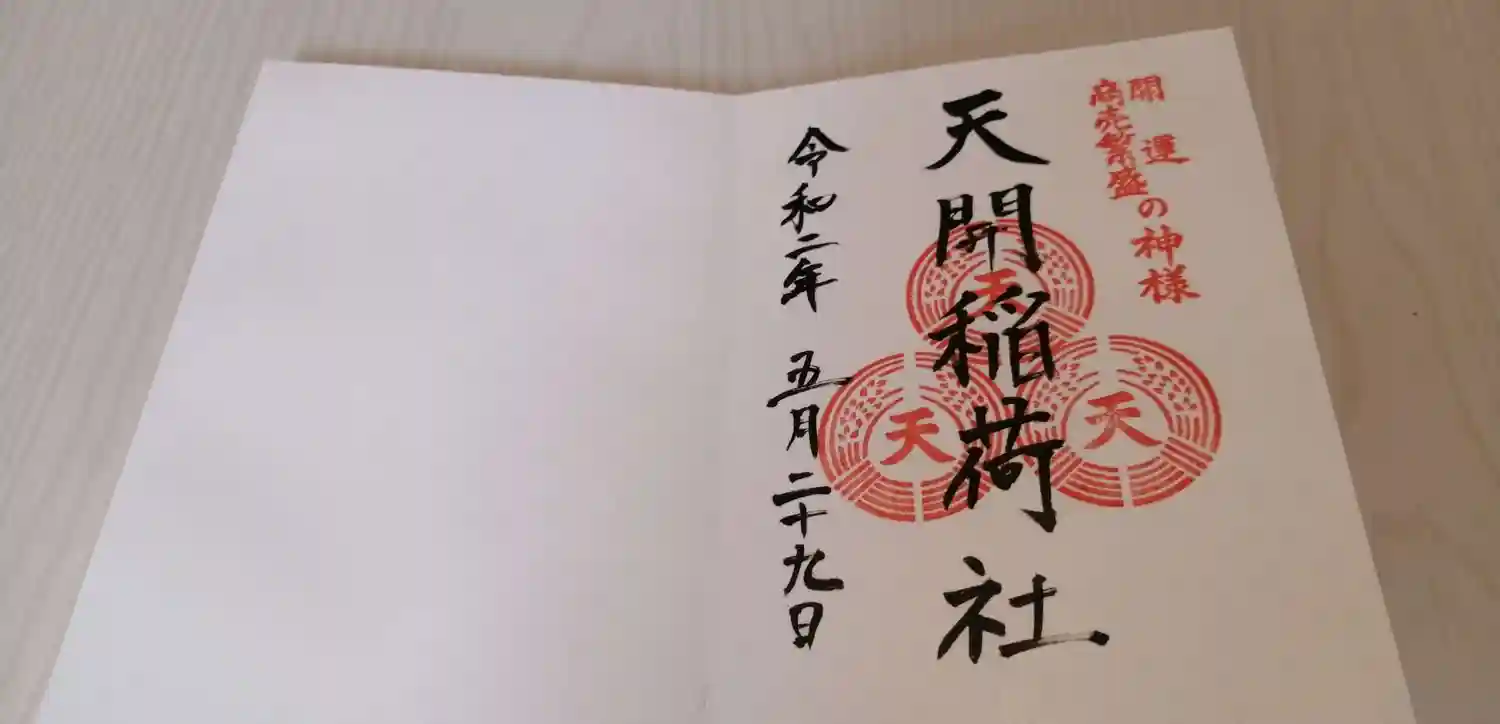 開運の神様
商売繁盛
天開稲荷社
天
天
天
令和二年 五月二十九日